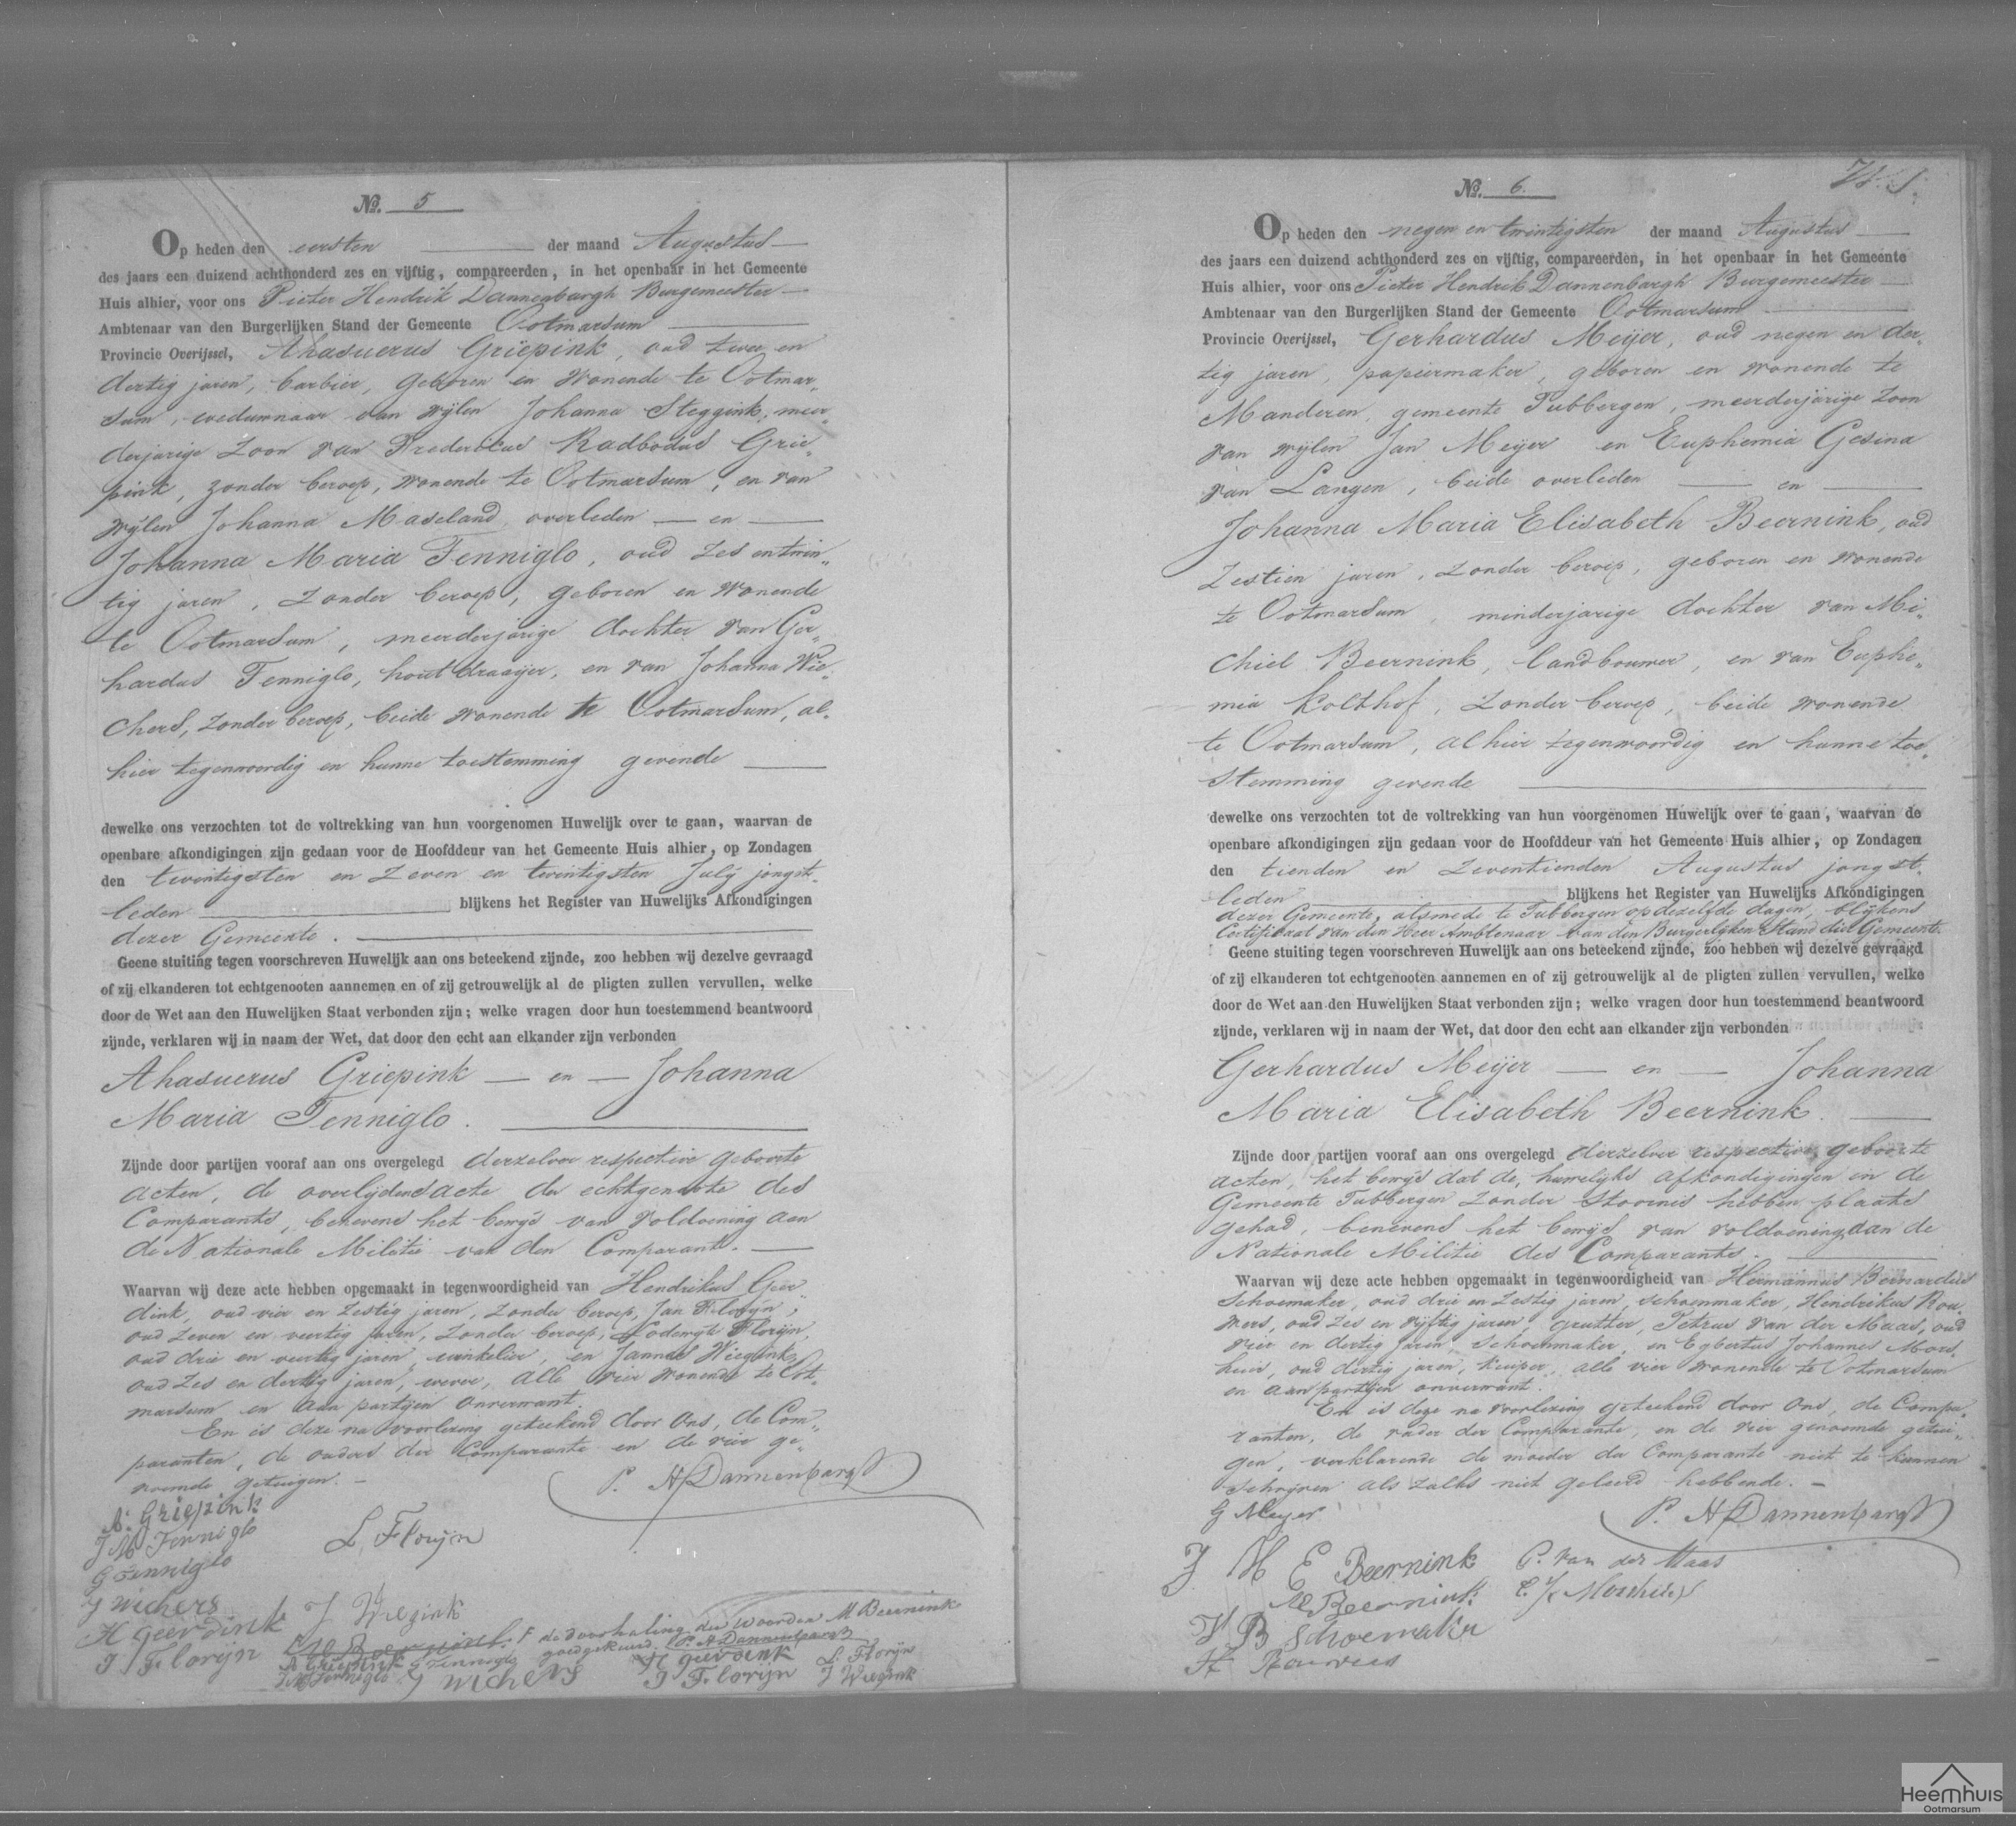 No. 5
Op heden den eersten der maand Augustus
des jaars een duizend achthonderd zes en vijftig, compareerden, in het openbaar in het Gemeente
Huis alhier, voor ons Pieter Hendrik Dannenbargh Burgemeester
Ambtenaar van den Burgerlijken Stand der Gemeente Ootmarsum
Provincie Overijssel, Ahasuerus Griepink, oud twee en
dertig jaren, barbier, geboren en wonende te Ootmar„
sum, weduwnaar van wijlen Johanna Steggink, meer„
derjarige zoon van Fredericus Radbodus Grie„
pink, zonder beroep, wonende te Ootmarsum, en van
wijlen Johanna Maseland, overleden — en —
Johanna Maria Tenniglo, oud zes en twin„
tig jaren, zonder beroep, geboren en wonende
te Ootmarsum, meerderjarige dochter van Ger„
hardus Tenniglo, houtdraaijer, en van Johanna Wie„
chers, zonder beroep, beide wonende te Ootmarsum, al„
hier tegenwoordig en hunne toestemming gevende
dewelke ons verzochten tot de voltrekking van hun voorgenomen Huwelijk over te gaan, waarvan de
openbare afkondigingen zijn gedaan voor de Hoofddeur van het Gemeente Huis alhier, op Zondagen
den twintigsten en zeven en twintigsten Julij jongst„
leden blijkens het Register van Huwelijks Afkondigingen
dezer Gemeente.
Geene stuiting tegen voorschreven Huwelijk aan ons beteekend zijnde, zoo hebben wij dezelve gevraagd
of zij elkanderen tot echtgenooten aannemen en of zij getrouwelijk al de pligten zullen vervullen, welke
door de Wet aan den Huwelijken Staat verbonden zijn; welke vragen door hun toestemmend beantwoord
zijnde, verklaren wij in naam der Wet, dat door den echt aan elkander zijn verbonden
Ahasuerus Griepink — en — Johanna
Maria Tenniglo.
Zijnde door partijen vooraf aan ons overgelegd derzelver respective geboorte
acten, de overlijdensacte der echtgenoote des
Comparants, benevens het bewijs van voldoening aan
de Nationale Militie van den Comparant.
Waarvan wij deze acte hebben opgemaakt in tegenwoordigheid van Hendrikus Geer„
dink, oud vier en zestig jaren, zonder beroep, Jan Florijn,
oud zeven en veertig jaren, zonder beroep, Lodewijk Florijn,
oud drie en veertig jaren, winkelier, en Jannes Wiegink,
oud zes en dertig jaren, wever, alle vier wonende te Oot„
marsum en aan partijen onverwant.
En is deze na voorlezing geteekend door ons, de Com„
paranten, de ouders der Comparante en de vier ge„
noemde getuigen.
P. H. Dannenbargh
A: Griepink
J M Tenniglo
G Tenniglo
J Wichers
H Geerdink
J Florijn
L. Florijn
J Wiegink
M Beernink F de doorhaling der woorden M Beernink
goedgekeurd. P. H. Dannenbargh
A Griepink G Tenniglo H Geerdink L. Florijn
J M Tenniglo J Wichers J Florijn J Wiegink
No. 6.
Op heden den negen en twintigsten der maand Augustus
des jaars een duizend achthonderd zes en vijftig, compareerden, in het openbaar in het Gemeente
Huis alhier, voor ons Pieter Hendrik Dannenbargh Burgemeester
Ambtenaar van den Burgerlijken Stand der Gemeente Ootmarsum
Provincie Overijssel, Gerhardus Meijer, oud negen en der„
tig jaren, papiermaker, geboren en wonende te
Manderen, gemeente Tubbergen, meerderjarige zoon
van wijlen Jan Meijer en Euphemia Gesina
van Langen, beide overleden — en —
Johanna Maria Elisabeth Beernink, oud
zestien jaren, zonder beroep, geboren en wonende
te Ootmarsum, minderjarige dochter van Mi„
chiel Beernink, landbouwer, en van Euphe„
mia Kolthof, zonder beroep, beide wonende
te Ootmarsum, alhier tegenwoordig en hunne toe„
stemming gevende
dewelke ons verzochten tot de voltrekking van hun voorgenomen Huwelijk over te gaan, waarvan de
openbare afkondigingen zijn gedaan voor de Hoofddeur van het Gemeente Huis alhier, op Zondagen
den tienden en zeventienden Augustus jongst„
leden blijkens het Register van Huwelijks Afkondigingen
dezer Gemeente, alsmede te Tubbergen op dezelfde dagen, blijkens
Certificaat van den Heer Ambtenaar van den Burgerlijken Stand dier Gemeente.
Geene stuiting tegen voorschreven Huwelijk aan ons beteekend zijnde, zoo hebben wij dezelve gevraagd
of zij elkanderen tot echtgenooten aannemen en of zij getrouwelijk al de pligten zullen vervullen, welke
door de Wet aan den Huwelijken Staat verbonden zijn; welke vragen door hun toestemmend beantwoord
zijnde, verklaren wij in naam der Wet, dat door den echt aan elkander zijn verbonden
Gerhardus Meijer — en — Johanna
Maria Elisabeth Beernink.
Zijnde door partijen vooraf aan ons overgelegd derzelver respective geboorte
acten, het bewijs dat de huwelijks afkondigingen in de
Gemeente Tubbergen zonder stoornis hebben plaats
gehad, benevens het bewijs van voldoening aan de
Nationale Militie des Comparants.
Waarvan wij deze acte hebben opgemaakt in tegenwoordigheid van Hermannus Bernardus
Schoemaker, oud drie en zestig jaren, schoenmaker, Hendrikus Rou„
wers, oud zes en vijftig jaren, grutter, Petrus van der Maas, oud
vier en dertig jaren, schoenmaker, en Egbertus Johannes Mors„
huis, oud dertig jaren, kuiper, alle vier wonende te Ootmarsum
en aan partijen onverwant.
En is deze na voorlezing geteekend door ons, de Compa„
ranten, de vader der Comparante, en de vier genoemde getui„
gen, verklarende de moeder der Comparante niet te kunnen
schrijven als zulks niet geleerd hebbende.
G Meyer
P. H. Dannenbargh
J M E Beernink
P. van der Maas
M Beernink
H B Schoemaker
H Rouwers
Heemhuis
Ootmarsum